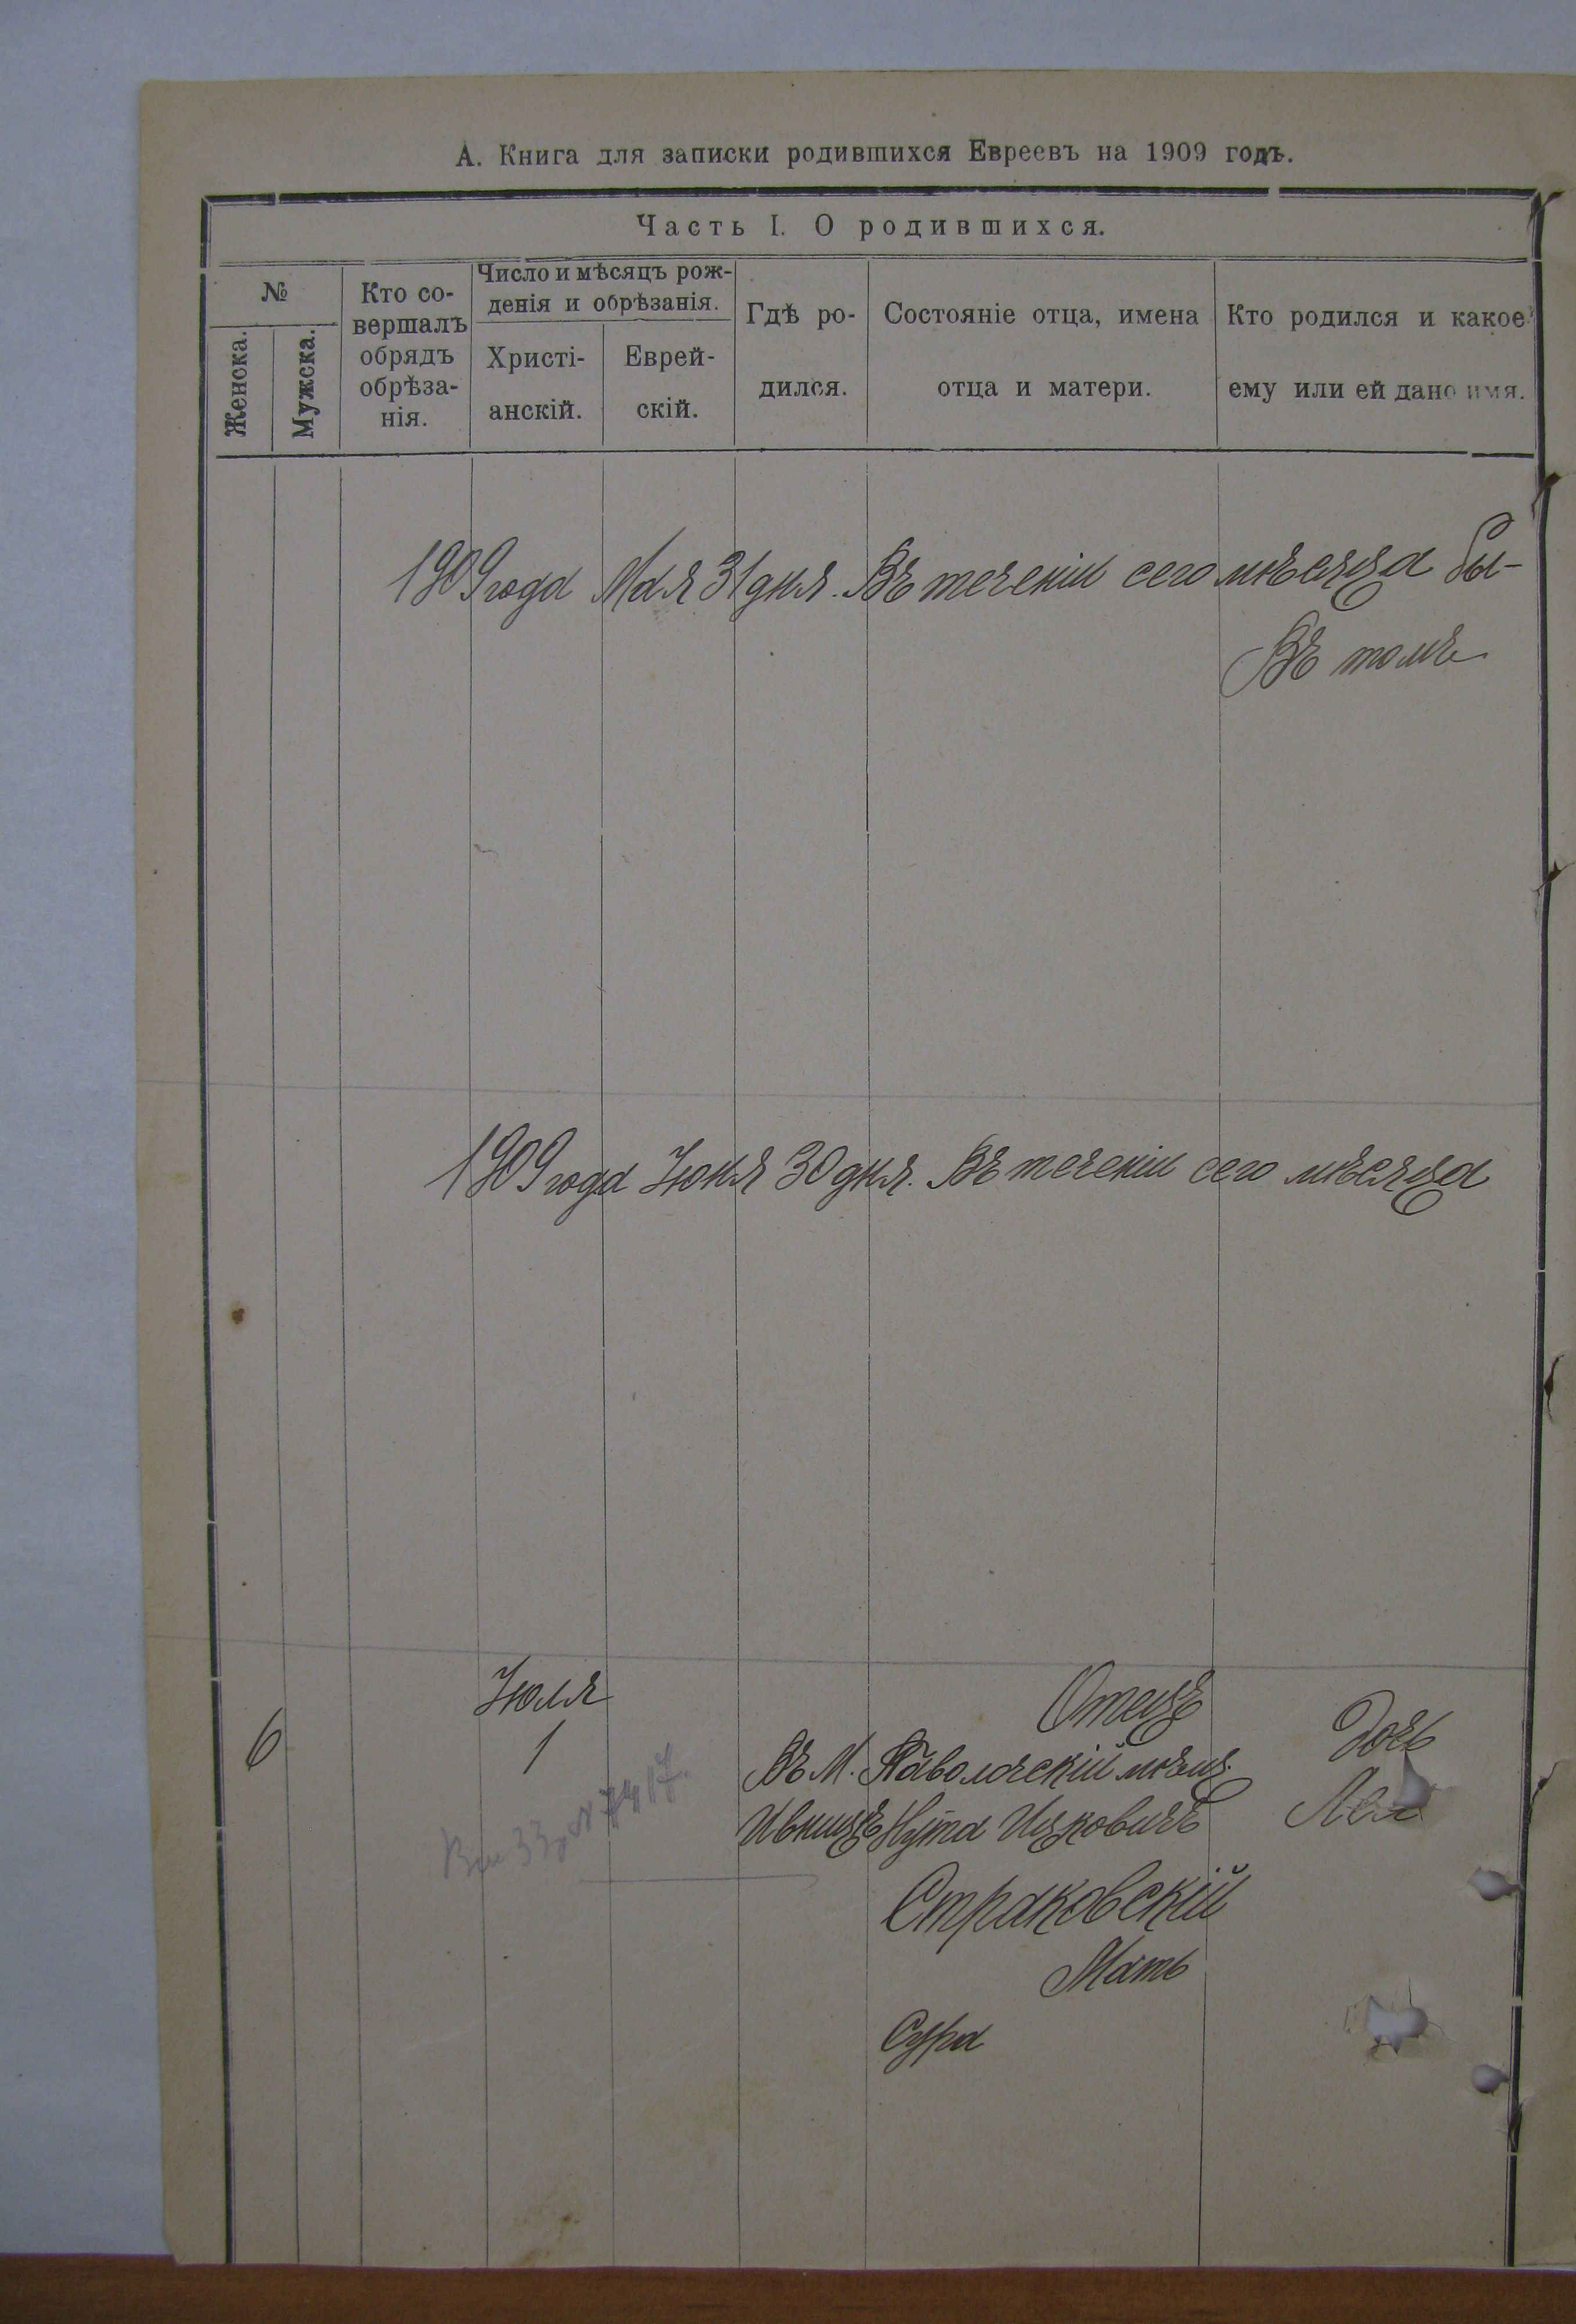 А. Книга для записки родившихся Евреевъ на 1909 годъ.
Часть I. О родившихся.
№
Женска.
Мужска.
Кто со-
вершалъ
обрядъ
обрѣза-
нія.
Число и мѣсяцъ рож-
денія и обрѣзанія.
Христі-
анскій.
Еврей-
скій.
Гдѣ ро-
дился.
Состояніе отца, имена
отца и матери.
Кто родился и какое
ему или ей дано имя.
1909 года Мая 31 дня. Въ теченіи сего мѣсяца бы-
Въ томъ
1909 года Іюня 30 дня. Въ теченіи сего мѣсяца
6
Іюля
1
Въ М.
Ивницѣ
Отецъ
Паволочскій мѣщ.
Нута Ицковичъ
Страковскій
Мать
Сура
Дочь
Лея